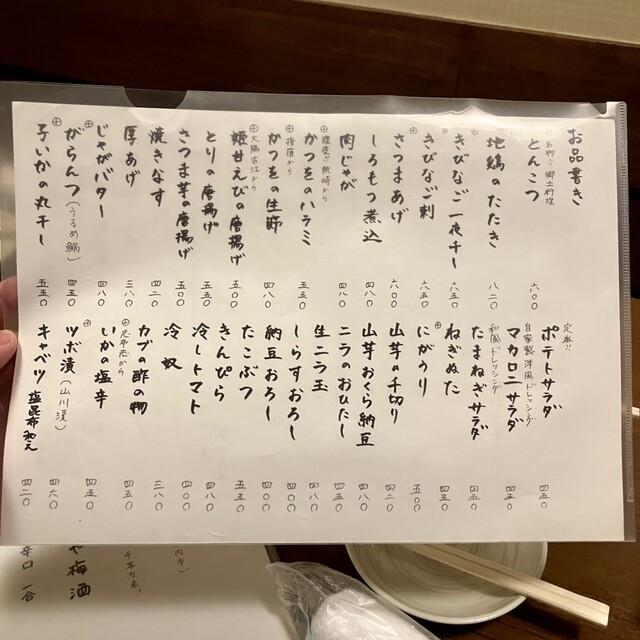 お品書き
とんこつ 六〇〇
地鶏のたたき 八二〇
きびなご一夜干し 六五〇
きびなご刺 六五〇
さつまあげ 六〇〇
しろもつ煮込 四八〇
肉じゃが 四八〇
枕崎から
かつをのハラミ 五五〇
指宿から
かつをの生節 四八〇
から
姫甘えびの唐揚げ 五五〇
とりの唐揚げ 五五〇
さつま芋の唐揚げ 五〇〇
焼きなす 四二〇
厚あげ 三八〇
じゃがバター 四八〇
がらんつ(うるめ鰯) 四五〇
子いかの丸干し 五五〇
定番!!
ポテトサラダ 四五〇
自家製 洋風ドレッシング
マカロニサラダ 四五〇
和風ドレッシング
たまねぎサラダ 四五〇
ねぎぬた 四五〇
にがうり 五〇〇
山芋の千切り 四二〇
山芋おくら納豆 四八〇
ニラのおひたし 四五〇
生ニラ玉 四八〇
しらすおろし 四〇〇
納豆おろし 四〇〇
たこぶつ 五五〇
きんぴら 四八〇
冷しトマト 四〇〇
冷奴 三八〇
カブの酢の物 四五〇
いかの塩辛 四五〇
ツボ漬(山川漬) 四六〇
キャベツ 塩昆布和え 四二〇
梅酒
辛口 一合